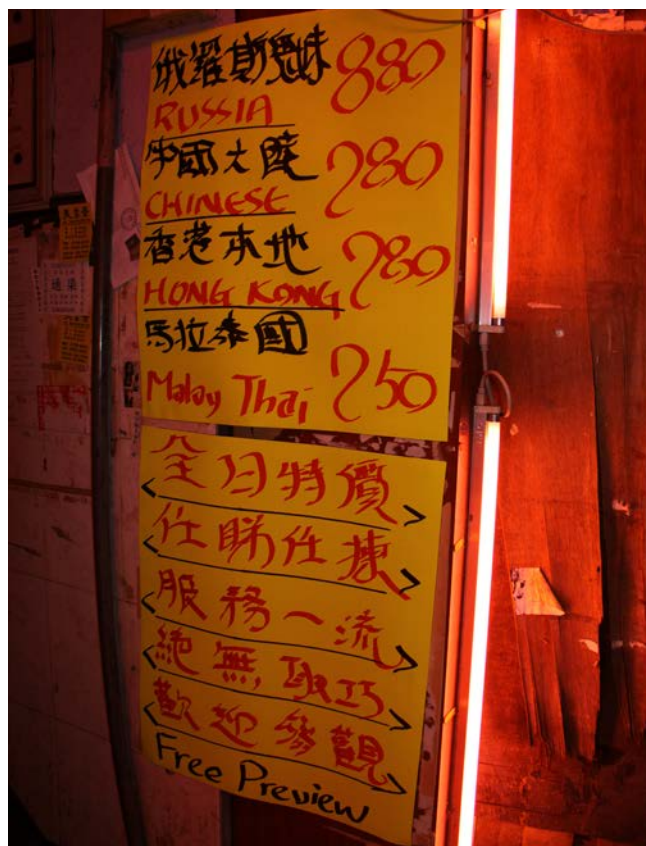 俄羅斯鬼妹 880
RUSSIA
中國大陸 280
CHINESE
香港本地 280
HONG KONG
馬拉泰國 250
Malay Thai
<全日特價>
<任睇任揀>
<服務一流>
<絕無取巧>
<歡迎參觀>
Free Preview